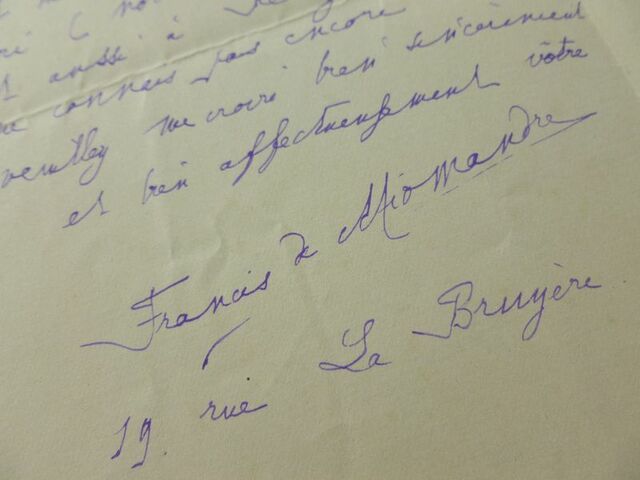 aussi à
connais pas encore
me croire bien sincèrement
et bien affectueusement vôtre
Francis de Miomandre
19 rue La Bruyère